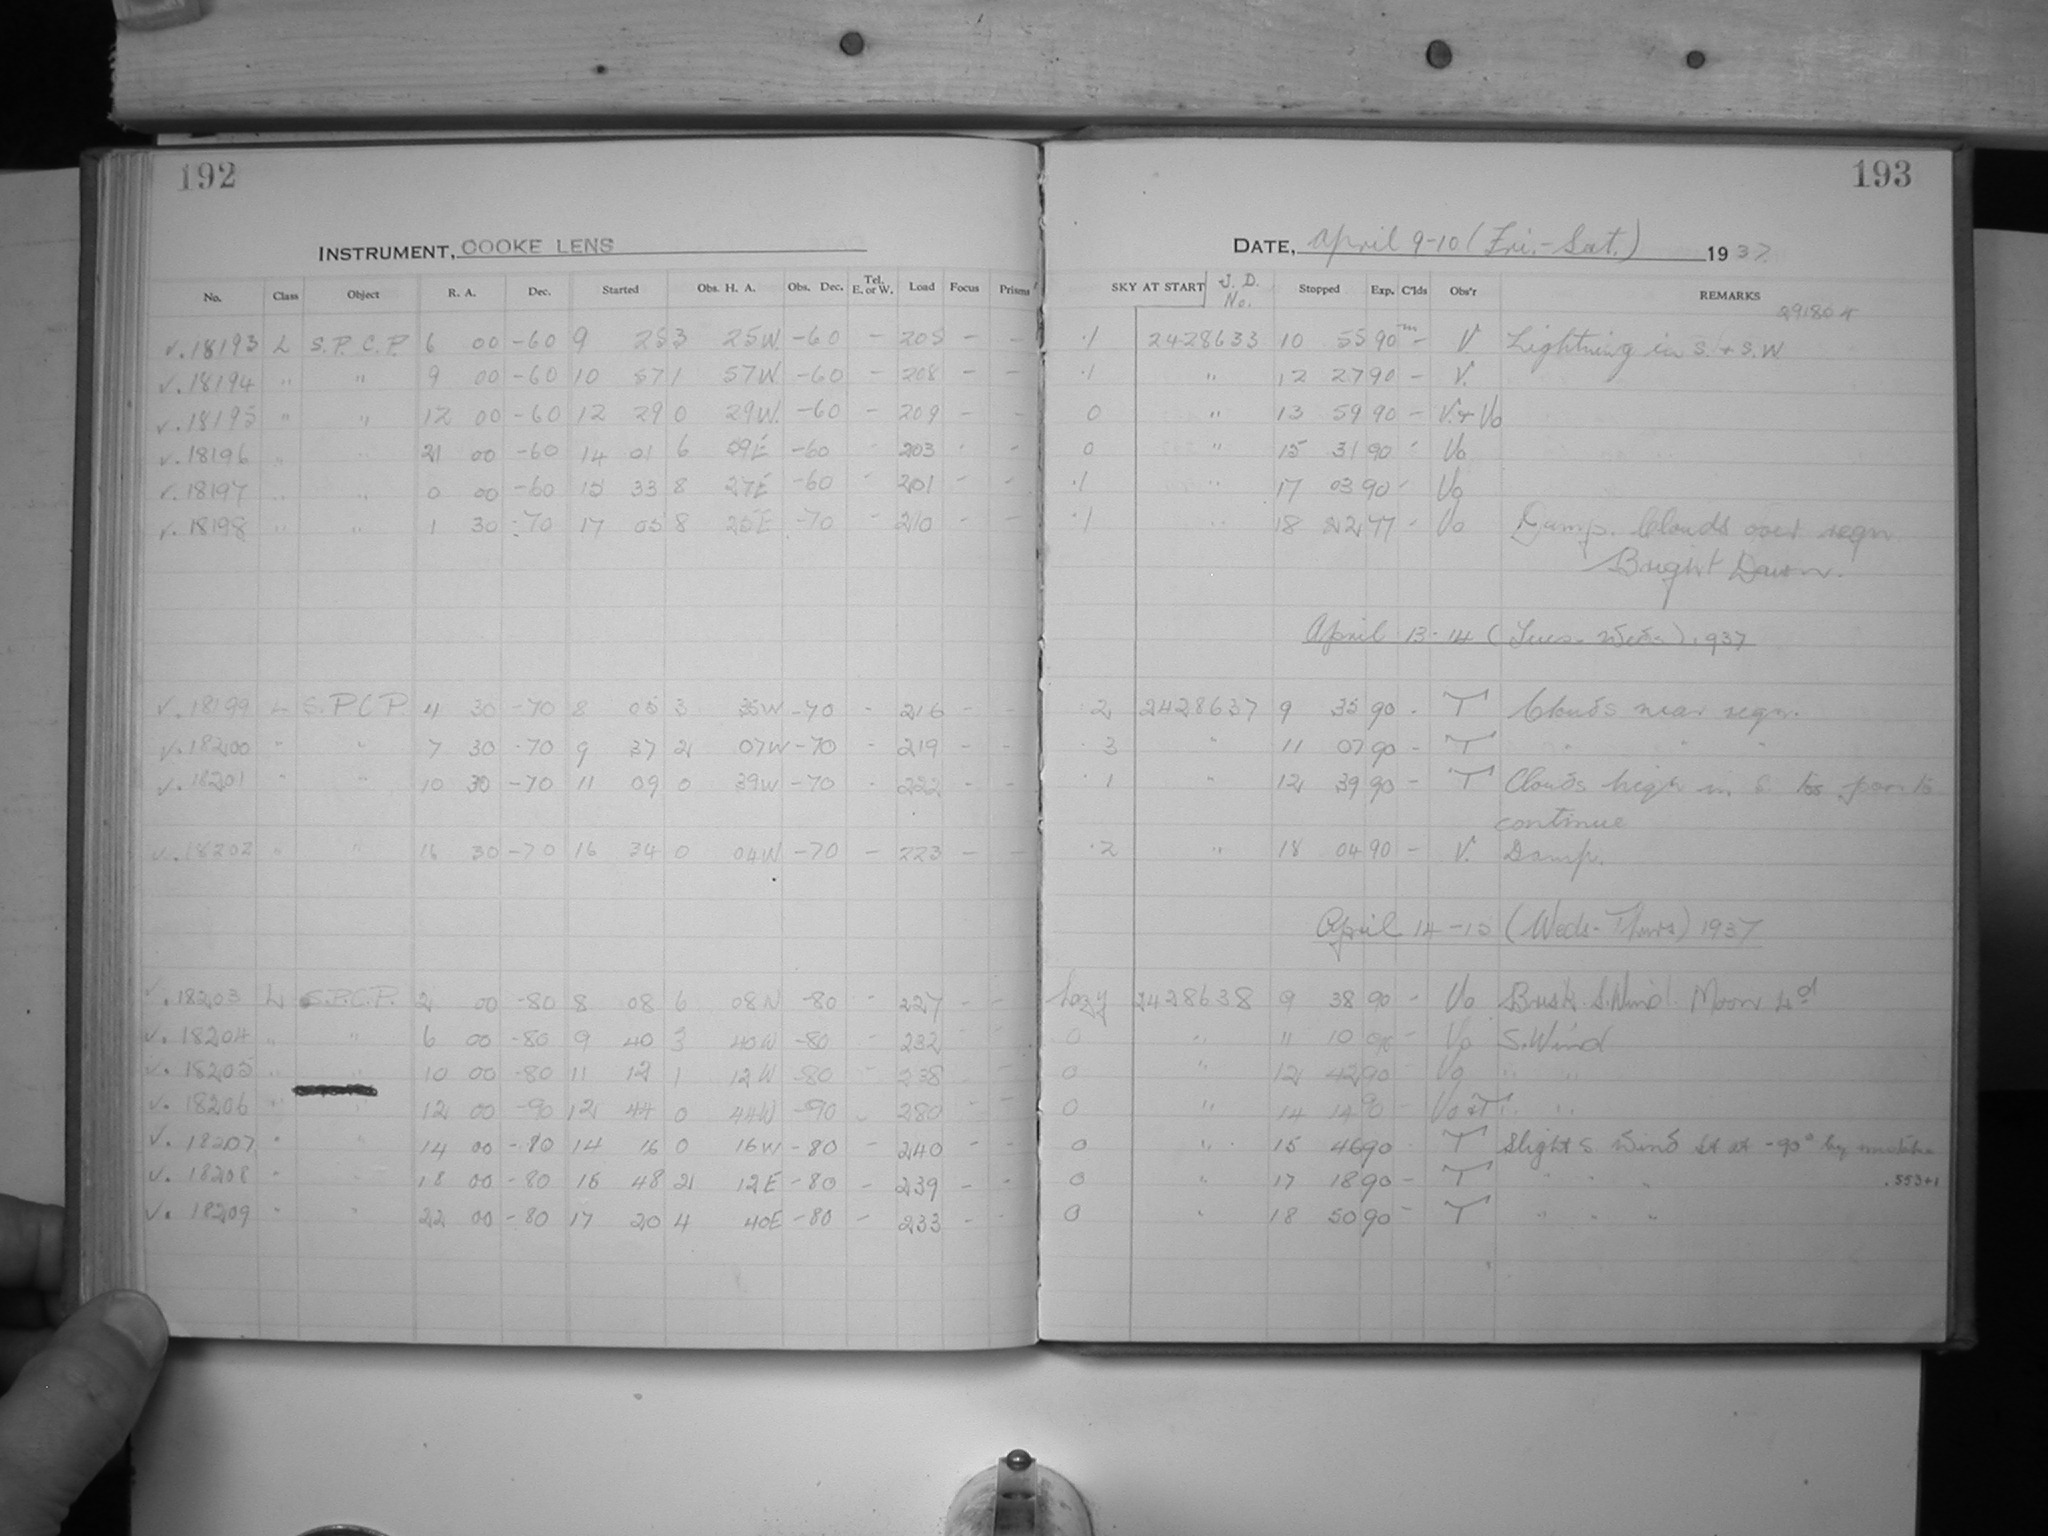 192
INSTRUMENT, COOKE LENS
No. Class Object R. A. Dec. Started Obs. H. A. Obs. Dec. Tel. E. or W. Load Focus Prisms
v. 18193 L S.P.C.P. 6 00 -60 9 25 3 25W. -60 - 205 - -
v. 18194 " " 9 00 -60 10 57 1 57W -60 - 208 - -
v. 18195 " " 12 00 -60 12 29 0 29W. -60 - 209 - -
v. 18196 " " 21 00 -60 14 01 6 09E -60 - 203 - -
v. 18197 " " 0 00 -60 15 33 8 27E -60 - 201 - -
v. 18198 " " 1 30 -70 17 05 8 25E -70 - 210 - -
v. 18199 L S.P.C.P. 4 30 -70 8 05 3 35W -70 - 216 - -
v. 18200 " " 7 30 -70 9 37 2 07W -70 - 219 - -
v. 18201 " " 10 30 -70 11 09 0 39W -70 - 222 - -
v. 18202 " " 16 30 -70 16 34 0 04W -70 - 223 - -
v. 18203 L S.P.C.P. 2 00 -80 8 08 6 08W -80 - 227 - -
v. 18204 " " 6 00 -80 9 40 3 40W -80 - 232 - -
v. 18205 " " 10 00 -80 11 12 1 12W -80 - 238 - -
v. 18206 " " 12 00 -90 12 44 0 44W -90 - 280 - -
v. 18207 " " 14 00 -80 14 16 0 16W -80 - 240 - -
v. 18208 " " 18 00 -80 15 48 2 12E -80 - 239 - -
v. 18209 " " 22 00 -80 17 20 4 40E -80 - 233 - -
193
DATE, April 9-10 (Fri.-Sat.) 1937
SKY AT START J. D. No. Stopped Exp. C'lds Obs'r REMARKS
.1 2428633 10 55 90m - V Lightning in S. + S.W
.1 " 12 27 90 - V.
0 " 13 59 90 - V. + Vo
0 " 15 31 90 - Vo
.1 " 17 03 90 - Vo
.1 " 18 22 77 - Vo Damp. Clouds over regn.
Bright Dawn.
April 13-14 (Tues-Weds) 1937
.2 2428637 9 35 90 - T Clouds near regn.
.3 " 11 07 90 - T " " "
.1 " 12 39 90 - T Clouds high in S. too poor to
continue
.2 " 18 04 90 - V. Damp.
April 14-15 (Weds-Thurs) 1937
hazy 2428638 9 38 90 - Vo Brisk S. Wind. Moon 4d
0 " 11 10 90 - Vo S. Wind
0 " 12 42 90 - Vo " "
0 " 14 14 90 - Vo + T " "
0 " 15 46 90 - T Slight S. Wind St at -90° by mistake
0 " 17 18 90 - T " " "
0 " 18 50 90 - T " " "